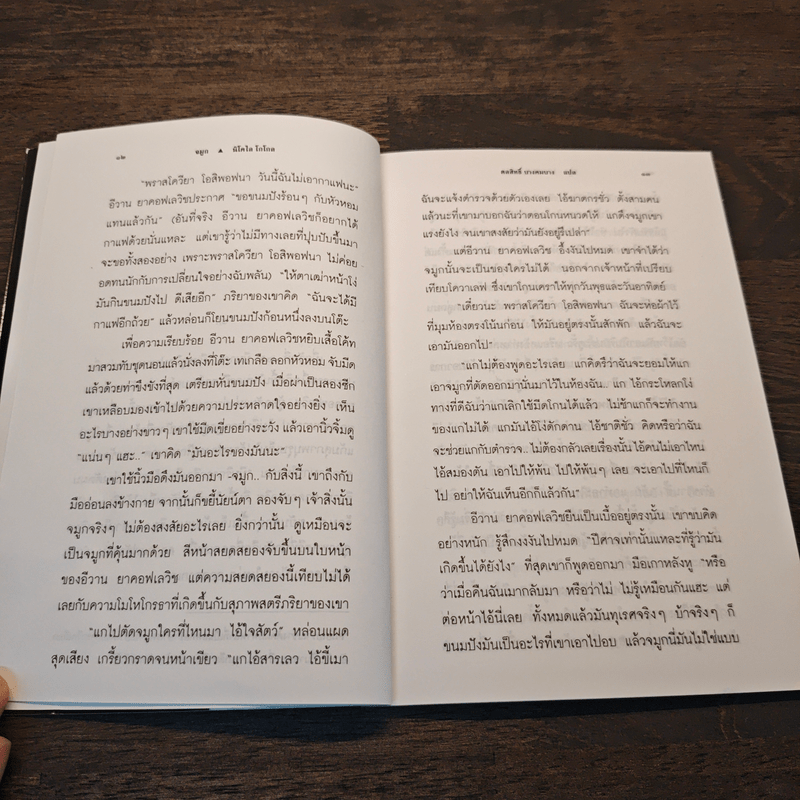 ๑๒ จมูก ▲ นิโคไล โกโกล
"พราสโควียา โอสิพอฟนา วันนี้ฉันไม่เอากาแฟนะ"
อีวาน ยาคอฟเลวิชประกาศ "ขอขนมปังร้อนๆ กับหัวหอม
แทนแล้วกัน" (อันที่จริง อีวาน ยาคอฟเลวิชก็อยากได้
กาแฟด้วยนั่นแหละ แต่เขารู้ว่าไม่มีทางเลยที่ปุบปับขึ้นมา
จะขอทั้งสองอย่าง เพราะพราสโควียา โอสิพอฟนา ไม่ค่อย
อดทนนักกับการเปลี่ยนใจอย่างฉับพลัน) "ให้ตาเฒ่าหน้าโง่
มันกินขนมปังไป ดีเสียอีก" ภริยาของเขาคิด "ฉันจะได้มี
กาแฟอีกถ้วย" แล้วหล่อนก็โยนขนมปังก้อนหนึ่งลงบนโต๊ะ
เพื่อความเรียบร้อย อีวาน ยาคอฟเลวิชหยิบเสื้อโค้ท
มาสวมทับชุดนอนแล้วนั่งลงที่โต๊ะ เทเกลือ ลอกหัวหอม จับมีด
แล้วด้วยท่าขึงขังที่สุด เตรียมหั่นขนมปัง เมื่อผ่าเป็นสองซีก
เขาเหลือบมองเข้าไปด้วยความประหลาดใจอย่างยิ่ง เห็น
อะไรบางอย่างขาวๆ เขาใช้มีดเขี่ยอย่างระวัง แล้วเอานิ้วจิ้มดู
"แน่นๆ แฮะ.." เขาคิด "มันอะไรของมันนะ"
เขาใช้นิ้วมือดึงมันออกมา -จมูก.. กับสิ่งนี้ เขาถึงกับ
มืออ่อนลงข้างกาย จากนั้นก็ขยี้นัยน์ตา ลองจับๆ เจ้าสิ่งนั้น
จมูกจริงๆ ไม่ต้องสงสัยอะไรเลย ยิ่งกว่านั้น ดูเหมือนจะ
เป็นจมูกที่คุ้นมากด้วย สีหน้าสยดสยองจับขึ้นบนใบหน้า
ของอีวาน ยาคอฟเลวิช แต่ความสยดสยองนี้เทียบไม่ได้
เลยกับความโมโหโกรธาที่เกิดขึ้นกับสุภาพสตรีภริยาของเขา
"แกไปตัดจมูกใครที่ไหนมา ไอ้ใจสัตว์" หล่อนแผด
สุดเสียง เกรี้ยวกราดจนหน้าเขียว "แกไอ้สารเลว ไอ้ขี้เมา
ดลสิทธิ์ บางคมบาง แปล ๑๓
ฉันจะแจ้งตำรวจด้วยตัวเองเลย ไอ้ฆาตกรชั่ว ตั้งสามคน
แล้วนะที่เขามาบอกฉันว่าตอนโกนหนวดให้ แกดึงจมูกเขา
แรงยังไง จนเขาสงสัยว่ามันยังอยู่รึเปล่า"
แต่อีวาน ยาคอฟเลวิช อึ้งงันไปหมด เขาจำได้ว่า
จมูกนั้นจะเป็นของใครไม่ได้ นอกจากเจ้าหน้าที่เปรียบ
เทียบโควาเลฟ ซึ่งเขาโกนเคราให้ทุกวันพุธและวันอาทิตย์
"เดี๋ยวนะ พราสโควียา โอสิพอฟนา ฉันจะห่อผ้าไว้
ที่มุมห้องตรงโน้นก่อน ให้มันอยู่ตรงนั้นสักพัก แล้วฉันจะ
เอามันออกไป"
"แกไม่ต้องพูดอะไรเลย แกคิดรึว่าฉันจะยอมให้แก
เอาจมูกที่ตัดออกมานั่นมาไว้ในห้องฉัน.. แก ไอ้กระโหลกโง่
ทางที่ดีฉันว่าแกเลิกใช้มีดโกนได้แล้ว ไม่ช้าแกก็จะทำงาน
ของแกไม่ได้ แกมันไอ้โง่ดักดาน ไอ้ชาติชั่ว คิดหรือว่าฉัน
จะช่วยแกกับตำรวจ..ไม่ต้องกลัวเลยเรื่องนั้น ไอ้คนไม่เอาไหน
ไอ้สมองตัน เอาไปให้พ้น ไปให้พ้นๆ เลย จะเอาไปที่ไหนก็
ไป อย่าให้ฉันเห็นอีกก็แล้วกัน"
อีวาน ยาคอฟเลวิชยืนเป็นเบื้ออยู่ตรงนั้น เขาขบคิด
อย่างหนัก รู้สึกงงงันไปหมด "ปีศาจเท่านั้นแหละที่รู้ว่ามัน
เกิดขึ้นได้ยังไง" ที่สุดเขาก็พูดออกมา มือเกาหลังหู "หรือ
ว่าเมื่อคืนฉันเมากลับมา หรือว่าไม่ ไม่รู้เหมือนกันแฮะ แต่
ต่อหน้าไอ้นี่เลย ทั้งหมดแล้วมันทุเรศจริงๆ บ้าจริงๆ ก็
ขนมปังมันเป็นอะไรที่เขาเอาไปอบ แล้วจมูกนี่มันไม่ใช่แบบ